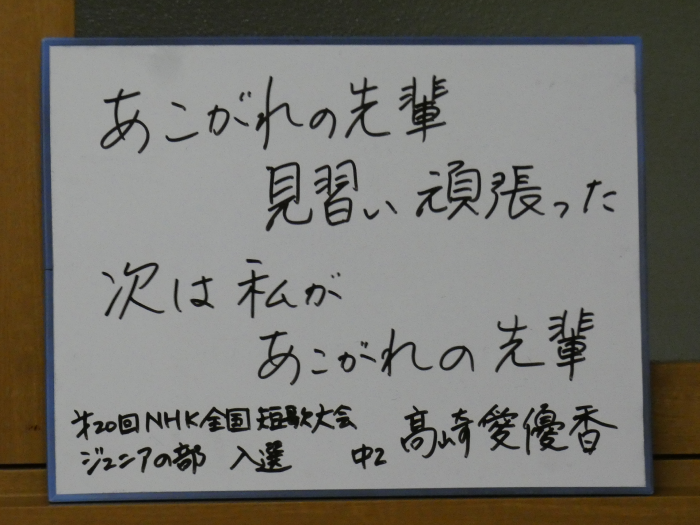 あこがれの先輩
見習い頑張った
次は私が
あこがれの先輩
第20回NHK全国短歌大会
ジュニアの部 入選 中2 髙崎愛優香